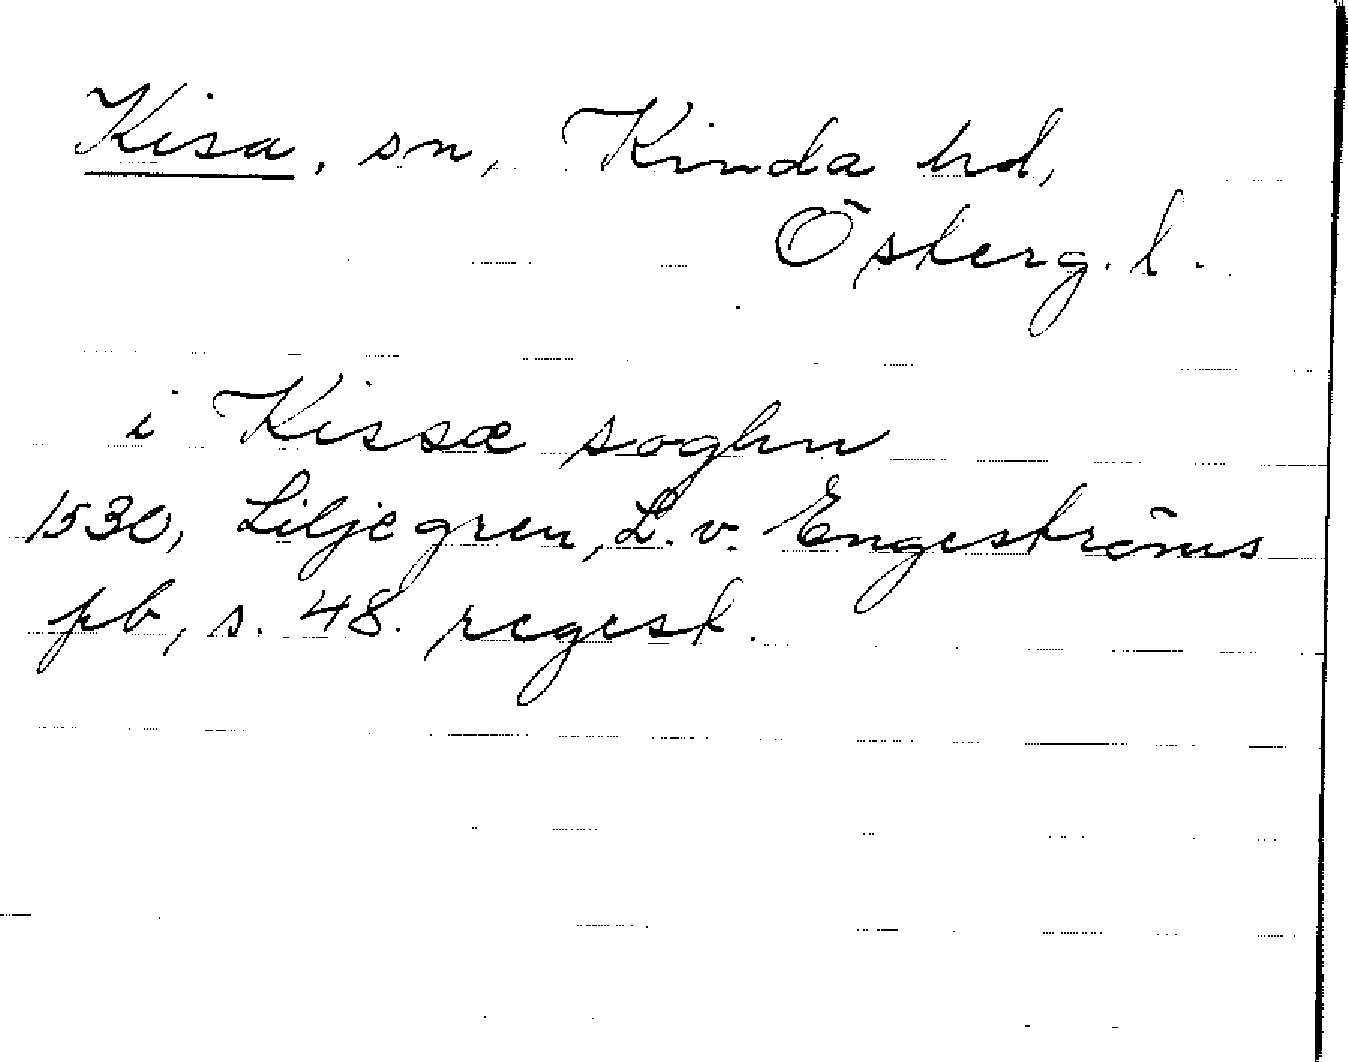 Kisa, sn, Kinda hd,
Österg. l.
i Kissæ soghn
1530, Liljegren, L. v. Engeströms
pb, s. 48. regest.